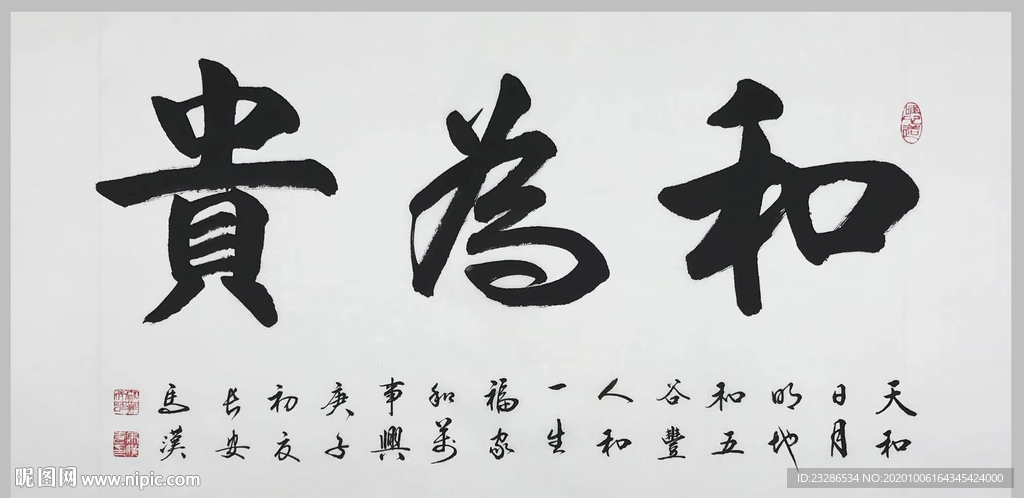 和為貴
天和
日月
明地
和五
谷豐
人和
一生
福家
和萬
事興
庚子
初夏
長安
馬漢
昵图网 www.nipic.com
ID:23286534 NO:20201006164345424000